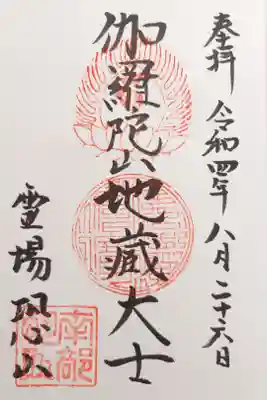 奉拝 令和四年八月二十六日
伽羅陀山地蔵大士
霊場恐山
南部